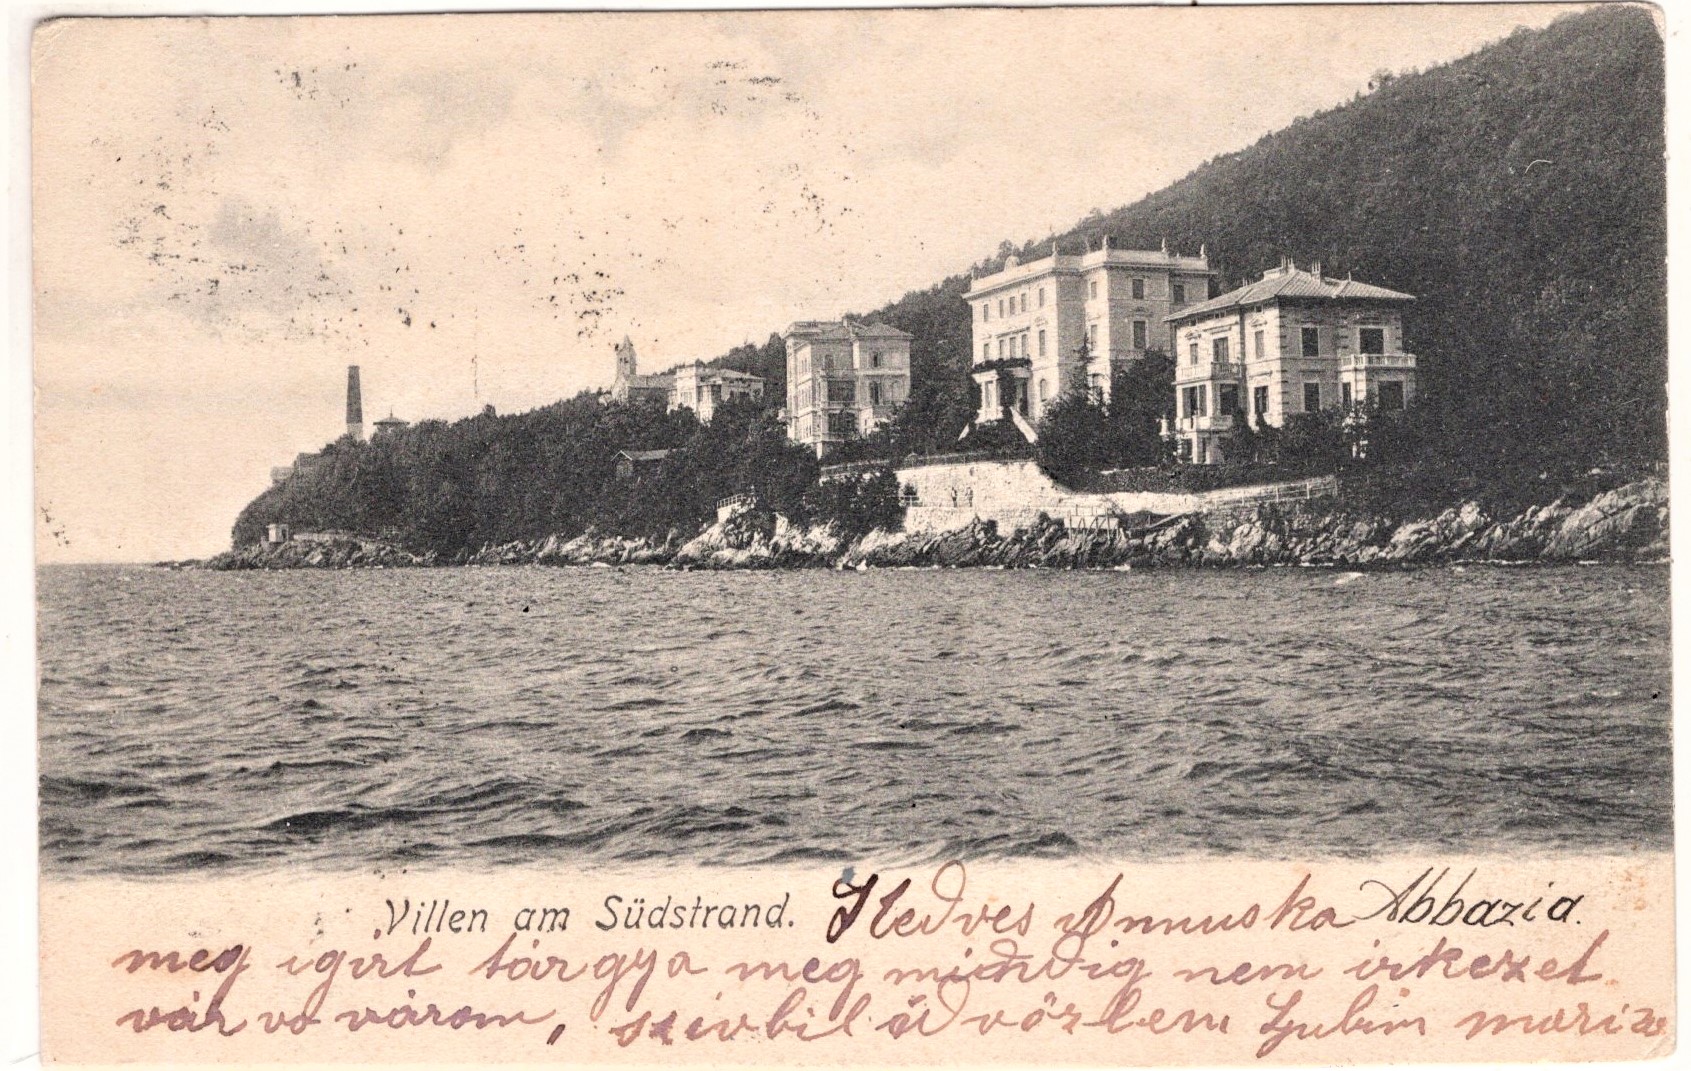 Villen am Südstrand. Kedves Annuska Abbazia.
meg igirt tárgya meg mindig nem irkezet
vár va várom, szivbil üdvözlem Ljubim mariza